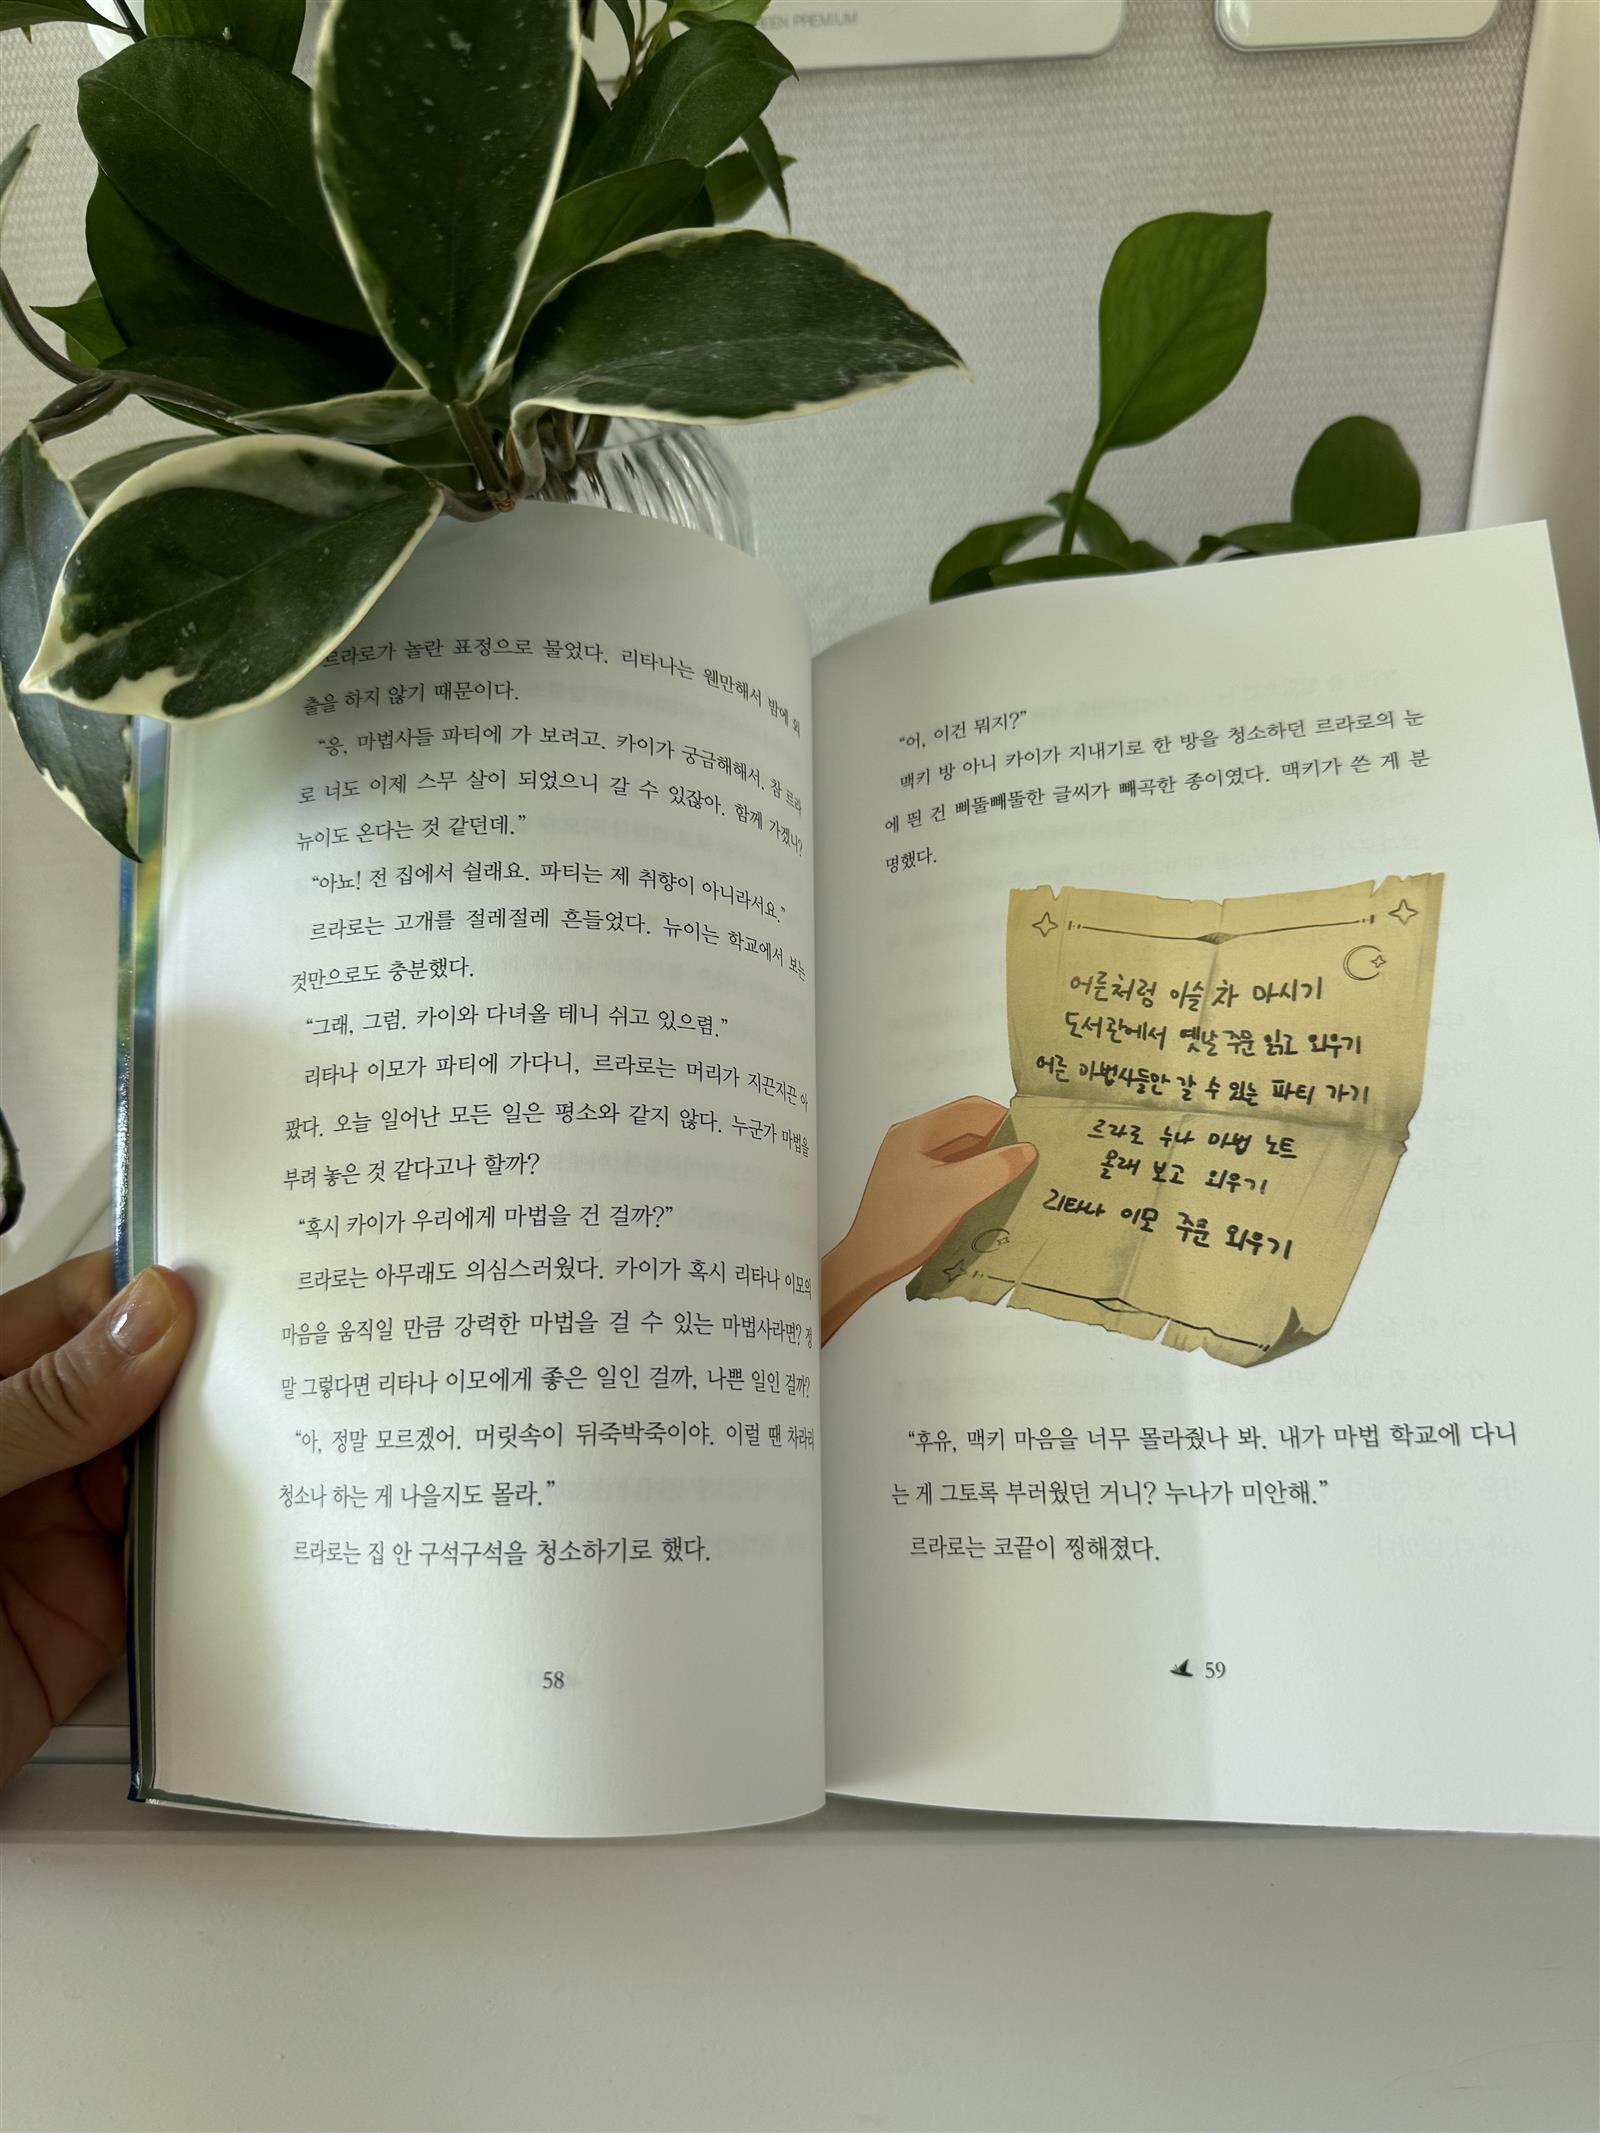 EEN PREMIUM
르라로가 놀란 표정으로 물었다. 리타나는 웬만해서 밤에 외
출을 하지 않기 때문이다.
“응, 마법사들 파티에 가 보려고. 카이가 궁금해해서. 참 르라
로 너도 이제 스무 살이 되었으니 갈 수 있잖아. 함께 가겠니?
뉴이도 온다는 것 같던데.”
“아뇨! 전 집에서 쉴래요. 파티는 제 취향이 아니라서요.”
르라로는 고개를 절레절레 흔들었다. 뉴이는 학교에서 보는
것만으로도 충분했다.
“그래, 그럼. 카이와 다녀올 테니 쉬고 있으렴.”
리타나 이모가 파티에 가다니, 르라로는 머리가 지끈지끈 아
팠다. 오늘 일어난 모든 일은 평소와 같지 않다. 누군가 마법을
부려 놓은 것 같다고나 할까?
“혹시 카이가 우리에게 마법을 건 걸까?”
르라로는 아무래도 의심스러웠다. 카이가 혹시 리타나 이모의
마음을 움직일 만큼 강력한 마법을 걸 수 있는 마법사라면? 정
말 그렇다면 리타나 이모에게 좋은 일인 걸까, 나쁜 일인 걸까?
“아, 정말 모르겠어. 머릿속이 뒤죽박죽이야. 이럴 땐 차라리
청소나 하는 게 나을지도 몰라.”
르라로는 집 안 구석구석을 청소하기로 했다.
58
“어, 이건 뭐지?”
맥키 방 아니 카이가 지내기로 한 방을 청소하던 르라로의 눈
에 띈 건 삐뚤빼뚤한 글씨가 빼곡한 종이였다. 맥키가 쓴 게 분
명했다.
어른처럼 이슬 차 마시기
도서관에서 옛날 주문 읽고 외우기
어른 마법사들만 갈 수 있는 파티 가기
르라로 누나 마법 노트
몰래 보고 외우기
리타나 이모 주문 외우기
“후유, 맥키 마음을 너무 몰라줬나 봐. 내가 마법 학교에 다니
는 게 그토록 부러웠던 거니? 누나가 미안해.”
르라로는 코끝이 찡해졌다.
59